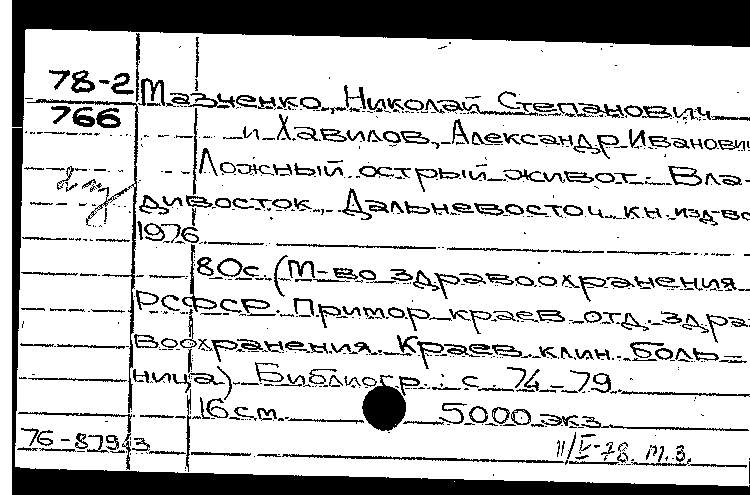 78-2
766
Мазченко, Николай Степанович
и Хавилов, Александр Иванович
Ложный острый живот. Вла-
дивосток, Дальневосточ. кн. изд-во
1976
80с. (М-во здравоохранения
РСФСР. Примор. краев. отд. здра-
воохранения. Краев. клин. боль-
ница) Библиогр.: с. 74-79.
16 см. 5000 экз.
76-87943
11/V-78. т.з.